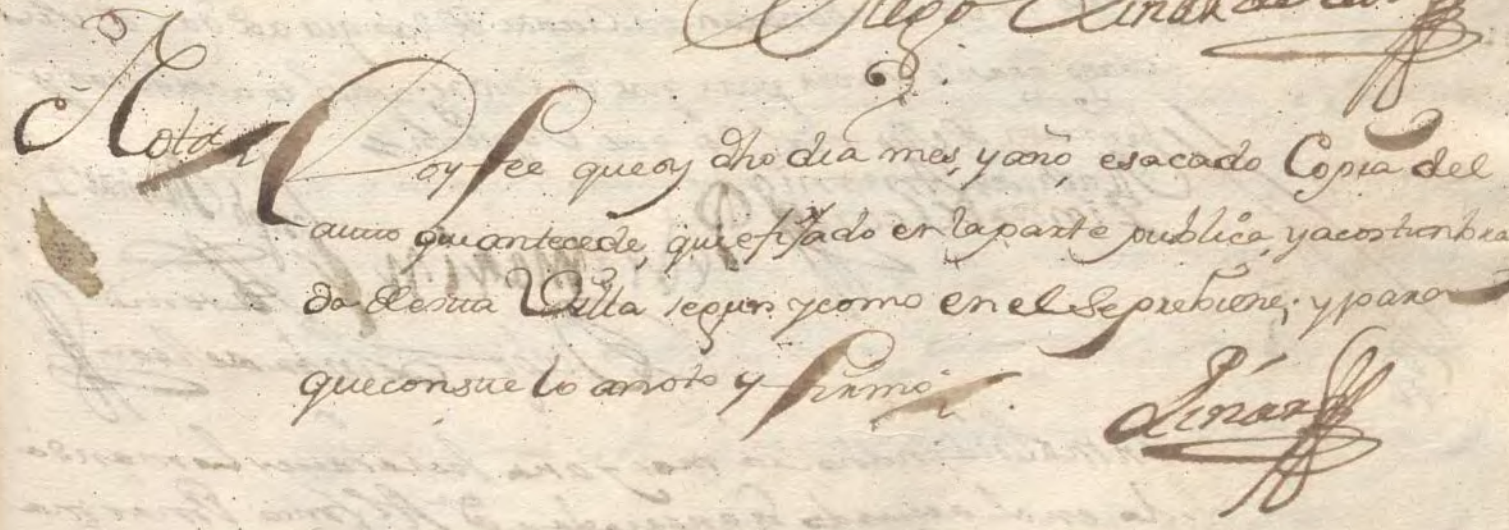 Diego Linar
Nota
Doy fee que oy dho dia mes, y año, e sacado Copia del
auuto que antecede, que e fijado en la parte publica, y acostunbra
da desta Villa segun y como en el se prebiene; y para
que conste lo anoto y firmo
Linar